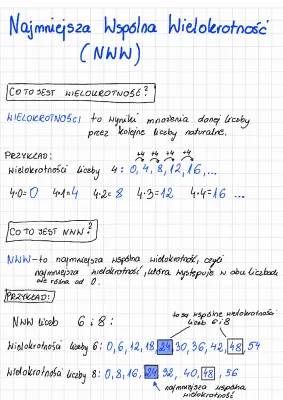 Najmniejsza Wspólna Wielokrotność
(NWW)
CO TO JEST WIELOKROTNOŚĆ?
WIELOKROTNOŚCI to wyniki mnożenia danej liczby
przez kolejne liczby naturalne.
PRZYKŁAD:
+4 +4 +4 +4
wielokrotności liczby 4: 0, 4, 8, 12, 16, ...
4·0=0 4·1=4 4·2=8 4·3=12 4·4=16 ...
CO TO JEST NWW?
NWW - to najmniejsza wspólna wielokrotność, czyli
najmniejsza wielokrotność, która występuje w obu liczbach
ale różna od 0.
PRZYKŁAD:
to są wspólne wielokrotności
liczb 6 i 8
NWW liczb 6 i 8:
wielokrotności liczby 6: 0, 6, 12, 18, 24, 30, 36, 42, 48, 54
wielokrotności liczby 8: 0, 8, 16, 24, 32, 40, 48, 56
najmniejsza wspólna
wielokrotność